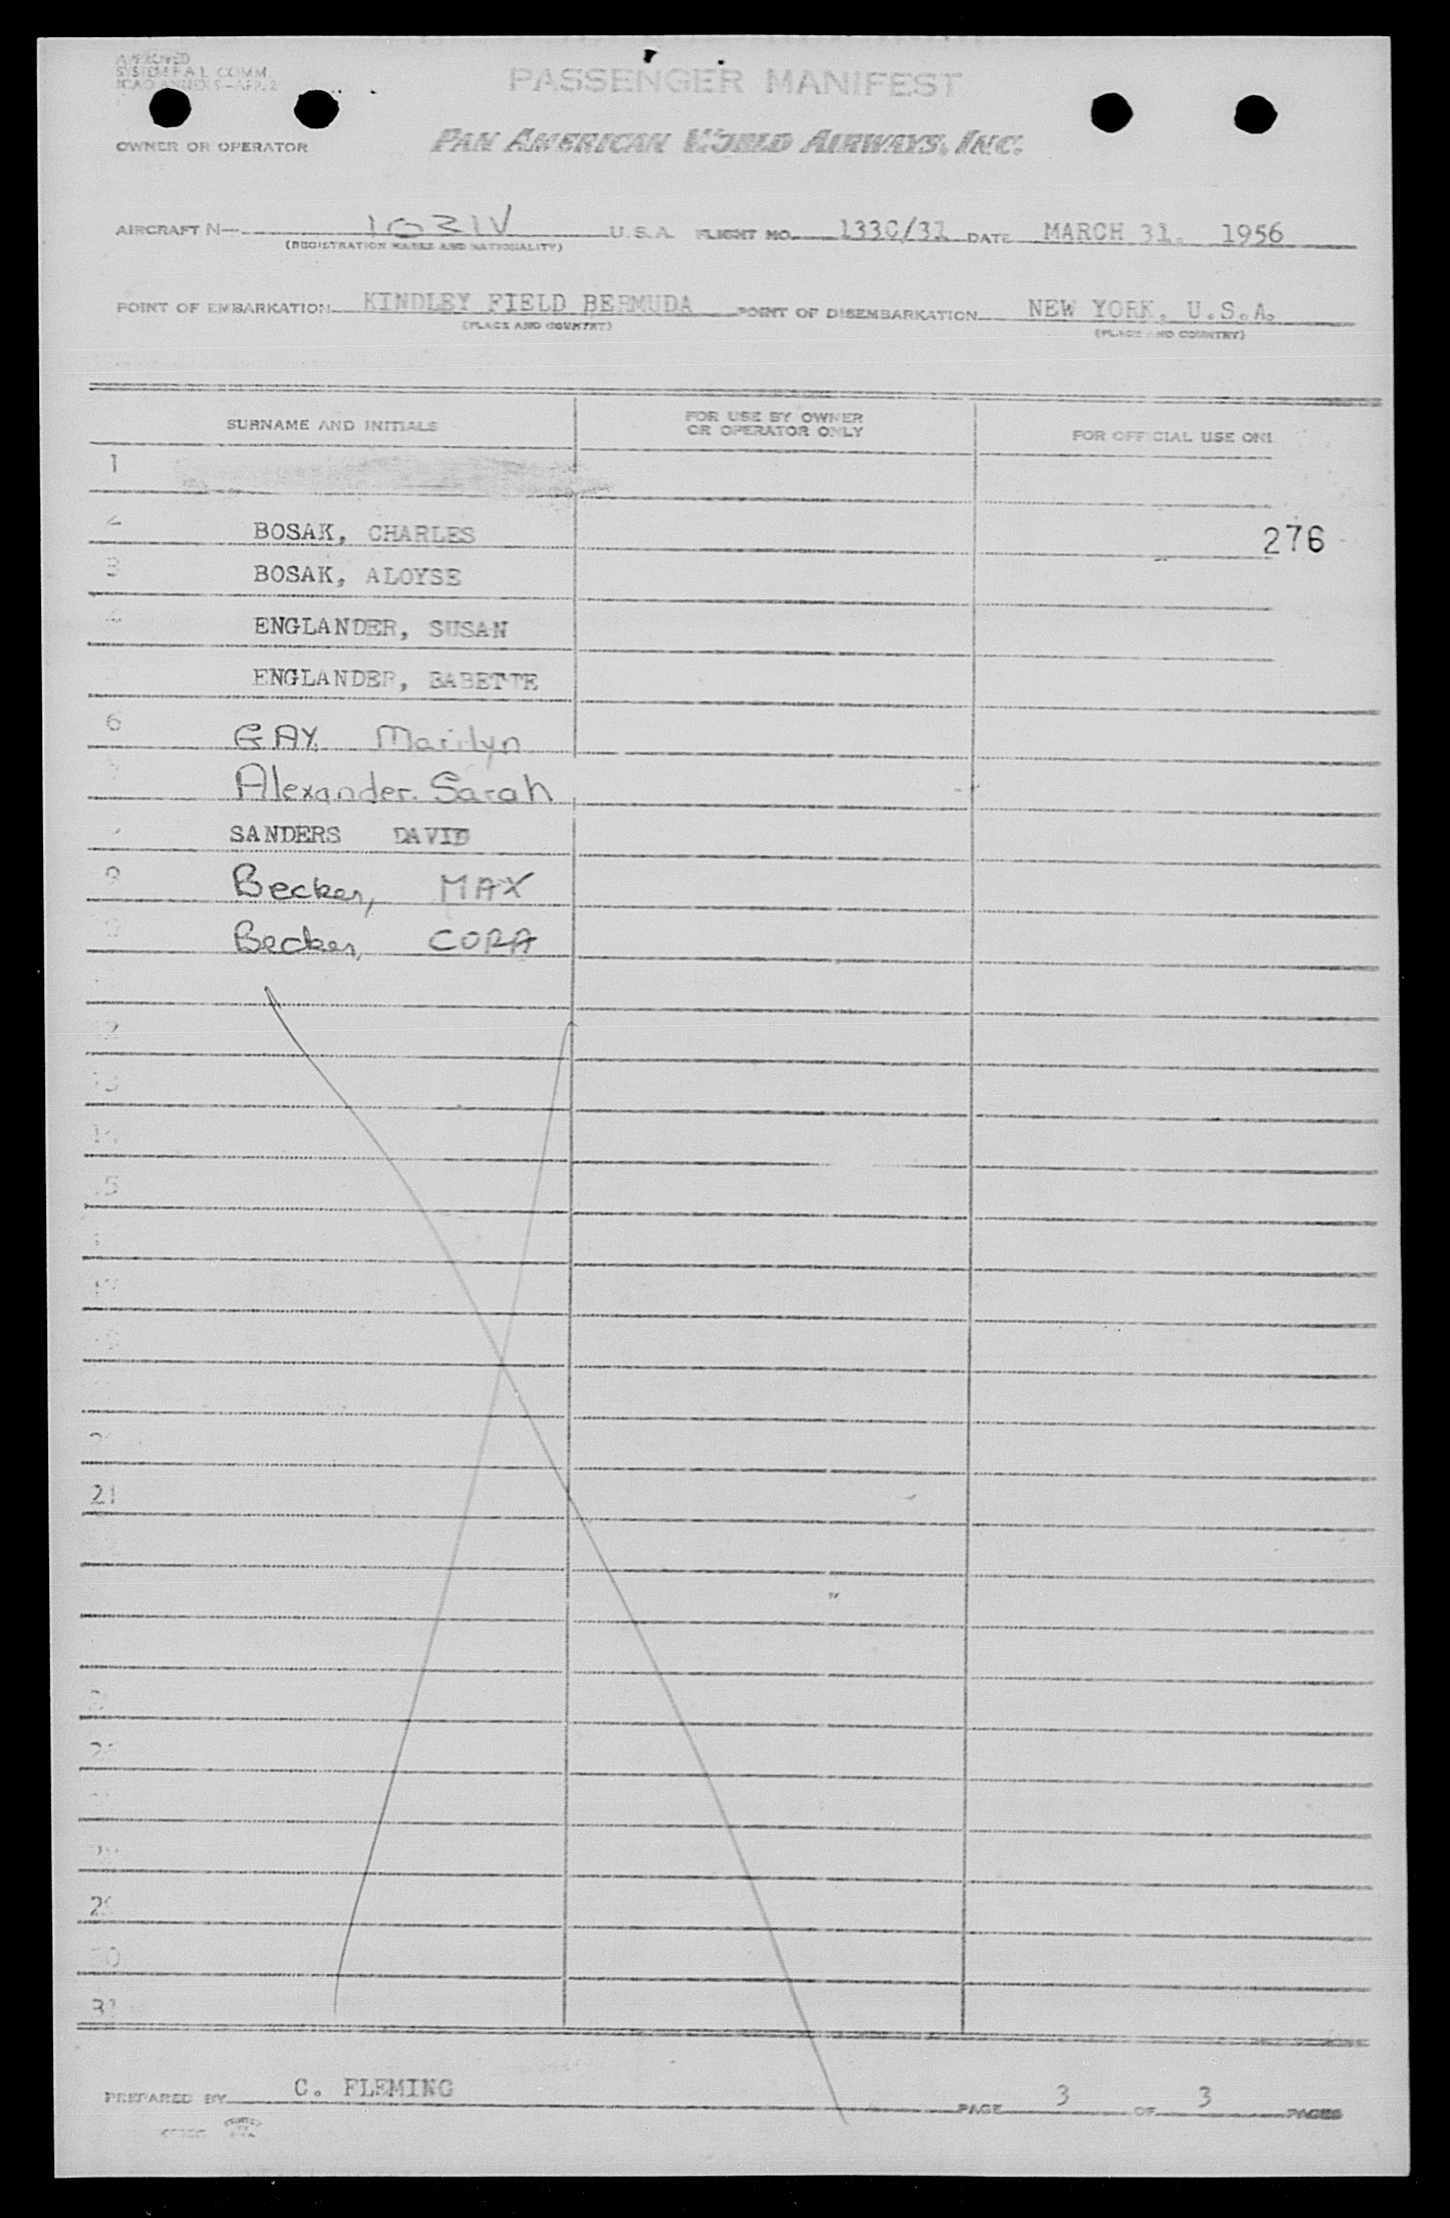 APPROVED
SYSTEM F.A.L. COMM.
ICAO ANNEX 9-APP. 2
PASSENGER MANIFEST
OWNER OR OPERATOR PAN AMERICAN WORLD AIRWAYS, INC.
AIRCRAFT N- 1031V U.S.A. FLIGHT NO. 133C/31 DATE MARCH 31, 1956
(REGISTRATION MARKS AND NATIONALITY)
POINT OF EMBARKATION KINDLEY FIELD BERMUDA POINT OF DISEMBARKATION NEW YORK, U.S.A.
(PLACE AND COUNTRY) (PLACE AND COUNTRY)
SURNAME AND INITIALS FOR USE BY OWNER OR OPERATOR ONLY FOR OFFICIAL USE ONL
1
2 BOSAK, CHARLES 276
3 BOSAK, ALOYSE
4 ENGLANDER, SUSAN
ENGLANDER, BABETTE
6 GAY Marilyn
Alexander. Sarah
SANDERS DAVID
9 Becker, MAX
Becker, CORA
12
13
14
15
17
21
26
29
30
31
PREPARED BY C. FLEMING PAGE 3 OF 3 PAGES